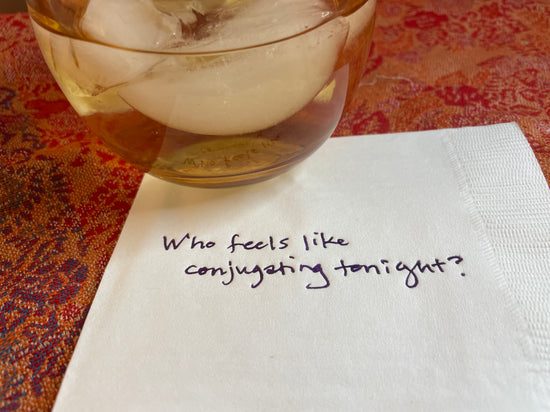 Who feels like
conjugating tonight?